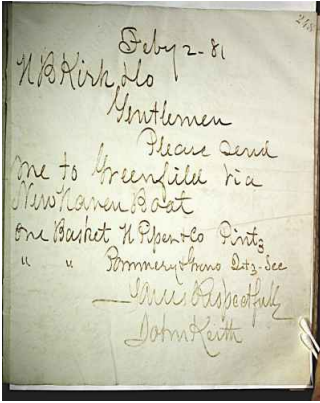 248
Feby 2-81
H B Kirk & Co
Gentlemen
Please send
me to Greenfield via
New Haven Boat
One Basket H Piper & Co Pints
" " Pommery & Greno Qts-Sec
Yours Respectfully
John Keith